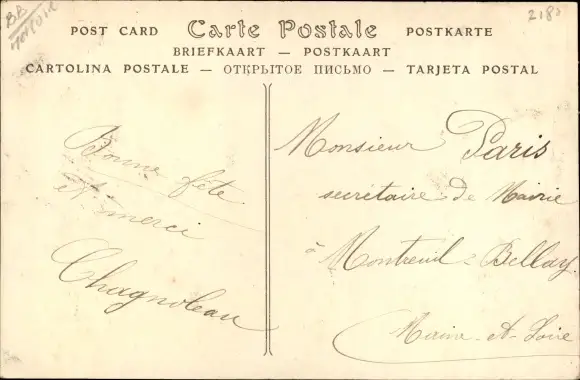 POST CARD Carte Postale POSTKARTE
BRIEFKAART — POSTKAART
CARTOLINA POSTALE — ОТКРЫТОЕ ПИСЬМО — TARJETA POSTAL
BB
2180
Bonne fête
et merci
Chagnoleau
Monsieur Paris
secrétaire de Mairie
à Montreuil-Bellay
Maine-et-Loire